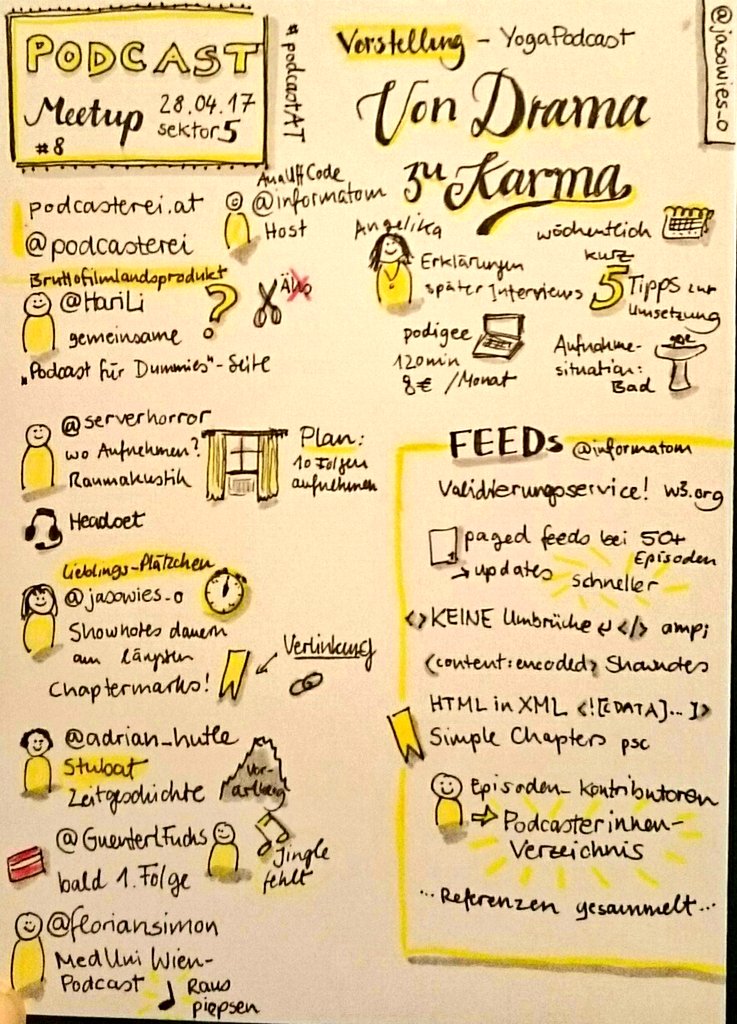 PODCAST
Meetup
28.04.17
sektor5
#8
#podcastAT
Vorstellung - YogaPodcast
Von Drama
zu Karma
@jasowies_o
podcasterei.at
@podcasterei
@informatom
Host
Bruttofilmlandsprodukt
@HariLi
?
Ähs
gemeinsame
"Podcast für Dummies"-Seite
@serverhorror
wo Aufnehmen?
Raumakustik
Plan:
10 Folgen
aufnehmen
Headset
Lieblings-Plätzchen
@jasowies_o
Shownotes dauern
am längsten
Chaptermarks!
Verlinkung
@adrian_hutle
Stubat
Zeitgeschichte
Vor-
arlberg
@GuenterlFuchs
bald 1. Folge
Jingle
fehlt
@floriansimon
MedUni Wien-
Podcast
Raus
piepsen
Angelika
Erklärungen
später Interviews
wöchentlich
kurz
5 Tipps zur
Umsetzung
podigee
120min
8€ /Monat
Aufnahme-
situation:
Bad
FEEDs @informatom
Validierungsservice! w3.org
paged feeds bei 50+
Episoden
→ updates schneller
<> KEINE Umbrüche ↵ </> amp;
<content:encoded> Shownotes
HTML in XML <![CDATA]...]>
Simple Chapters psc
Episoden- Kontributoren
⇒ Podcasterinnen-
Verzeichnis
...Referenzen gesammelt...